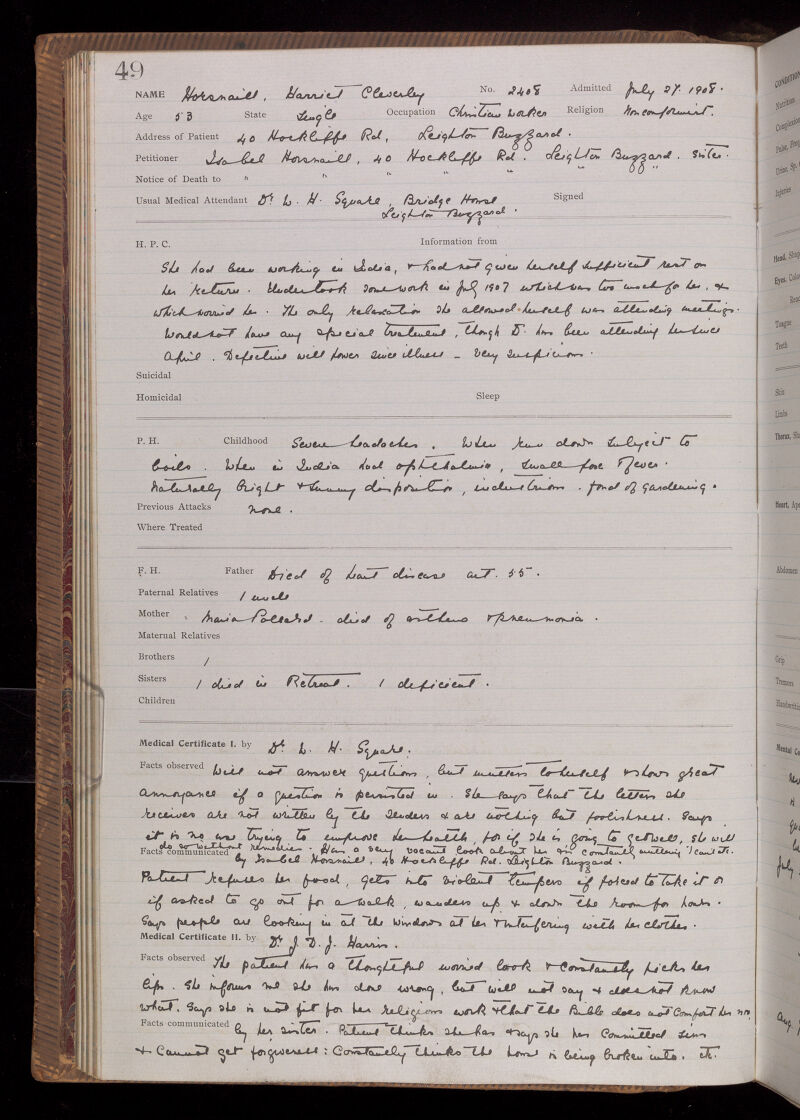 49
NAME Horsnaill, Harriet Cleverley No. 2408 Admitted July 27. 1908.
Age 53 State Single Occupation Christian Worker Religion Nonconformist.
Address of Patient 40 Hockliffe Rd, Leighton Buzzard.
Petitioner Isabel Horsnaill, 40 Hockliffe Rd. Leighton Buzzard. Sister.
Notice of Death to " " " " " "
Usual Medical Attendant Dr L. H. Square, Bridge House Signed
Leighton Buzzard.
H. P. C. Information from
She had been working in India, & had not given herself sufficient rest on
her return. Undertook some work in July 1907 which was too much for her, &
which worried her. The only relaxation she allowed herself was attending meetings.
Would not have any special treatment, though Dr. has been attending her since
April. Defective will power since illness - very suspicious.
Suicidal
Homicidal Sleep
P. H. Childhood Severe headaches. When run down subject to
boils. When in India had ophthalmia, small pox & fever.
Naturally bright & sunny disposition, industrious. fond of gardening.
Previous Attacks None.
Where Treated
F. H. Father Died of heart disease aet. 55.
Paternal Relatives 1 uncle
Mother Maria Pollard - died of asthma & pneumonia.
Maternal Relatives
Brothers 1
Sisters 1 died in Retreat. 1 deficient.
Children
Medical Certificate I. by Dr L. H. Square.
Facts observed Will not answer questions, but mutters to herself & shows great
annoyance if a question is persisted in. She says that the letters she
receives are not written by the senders & are nothing but foolishness. Says
it is no use trying to improve her health, for if she is going to get well, she will
do so without remedies. Has a very vacant look about her & is constantly muttering "I can't etc.
Facts communicated by Isabel Horsnaill, 40 Hockliffe Rd. Leighton Buzzard.
Patient refuses her food, gets into violent tempers if forced to take it or
if asked to go out for a walk, wanders up & down the room for hours.
Says people are looking in at the windows at her & interfering with her clothes.
Medical Certificate II. by Dr J. D. J. Harris.
Facts observed The patient has a thoughtful worried look & constantly picks her
lips. She informs me she has done wrong, but will not say & does not know
what. Says she is not fit for her religious work & that the Bible does not comfort her now.
Facts communicated by her sister. Patient thinks she has & says she has committed sins
& cannot get forgiveness: Constantly thinks the house is being broken into. etc.
CONDITION
Nutrition
Complexion
Pulse, Freq
Urine, Sp.
Injuries
Head, Shap
Eyes, Colo
Reac
Tongue
Teeth
Skin
Limbs
Thorax, Sha
Heart, Ape
Abdomen
Grip
Tremors
Handwriting
Mental Co
July
Aug.